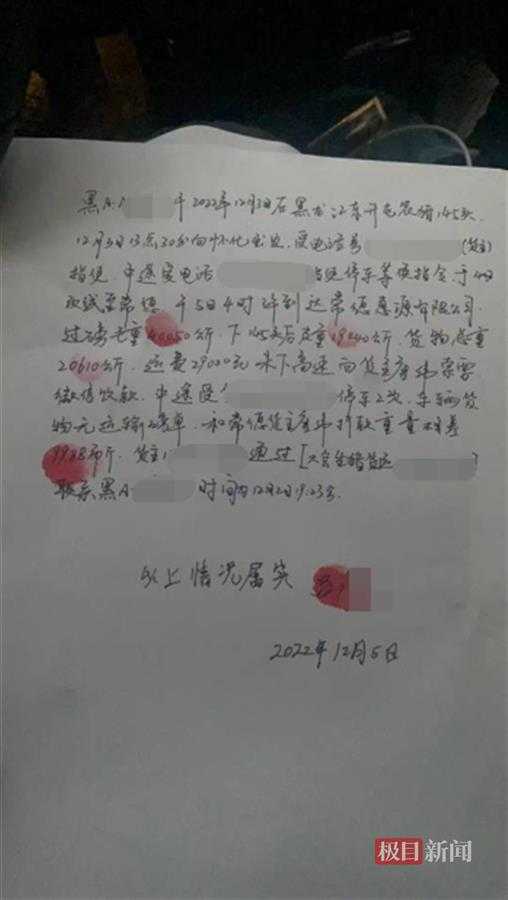 黑A·于2022年12月3日在黑龙江东升屯装猪145头.
12月3日13点30分向怀化出发.受电话号(货主)
指使.中途受电话指使停车等候指令.于4日
改线至常德.于5日4时许到达常德惠源有限公司.
过磅毛重40050公斤.下145头后皮重19440公斤.货物总重
20610公斤.运费29000元未下高速向货主索要
微信收款.中途受停车2次.车辆货
物无运输磅单.和常德货主重量相差
9988市斤.货主通过[生猪货运]
联系黑A·时间为12月2日9:23分.
以上情况属实
2022年12月5日
极目新闻